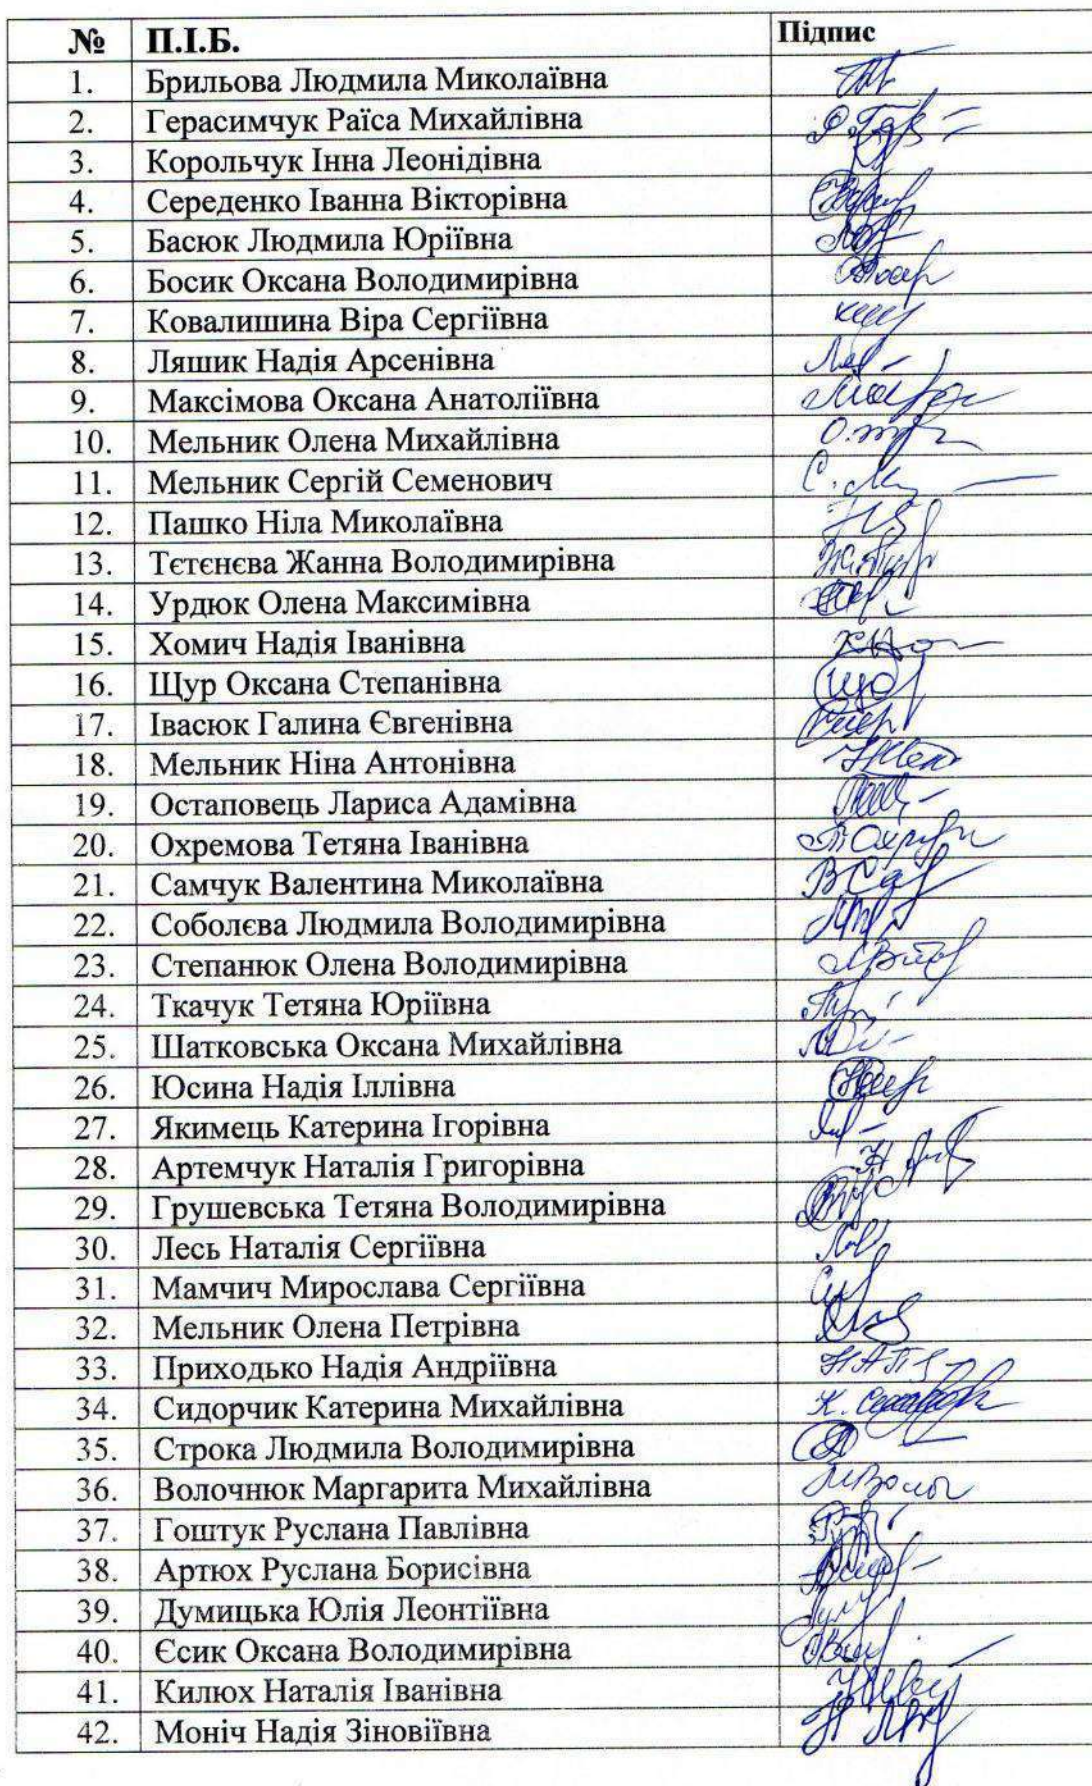 № П.І.Б. Підпис
1. Брильова Людмила Миколаївна
2. Герасимчук Раїса Михайлівна
3. Корольчук Інна Леонідівна
4. Середенко Іванна Вікторівна
5. Басюк Людмила Юріївна
6. Босик Оксана Володимирівна
7. Ковалишина Віра Сергіївна
8. Ляшик Надія Арсенівна
9. Максімова Оксана Анатоліївна
10. Мельник Олена Михайлівна
11. Мельник Сергій Семенович
12. Пашко Ніла Миколаївна
13. Тєтєнєва Жанна Володимирівна
14. Урдюк Олена Максимівна
15. Хомич Надія Іванівна
16. Щур Оксана Степанівна
17. Івасюк Галина Євгенівна
18. Мельник Ніна Антонівна
19. Остаповець Лариса Адамівна
20. Охремова Тетяна Іванівна
21. Самчук Валентина Миколаївна
22. Соболєва Людмила Володимирівна
23. Степанюк Олена Володимирівна
24. Ткачук Тетяна Юріївна
25. Шатковська Оксана Михайлівна
26. Юсина Надія Іллівна
27. Якимець Катерина Ігорівна
28. Артемчук Наталія Григорівна
29. Грушевська Тетяна Володимирівна
30. Лесь Наталія Сергіївна
31. Мамчич Мирослава Сергіївна
32. Мельник Олена Петрівна
33. Приходько Надія Андріївна
34. Сидорчик Катерина Михайлівна
35. Строка Людмила Володимирівна
36. Волочнюк Маргарита Михайлівна
37. Гоштук Руслана Павлівна
38. Артюх Руслана Борисівна
39. Думицька Юлія Леонтіївна
40. Єсик Оксана Володимирівна
41. Килюх Наталія Іванівна
42. Моніч Надія Зіновіївна